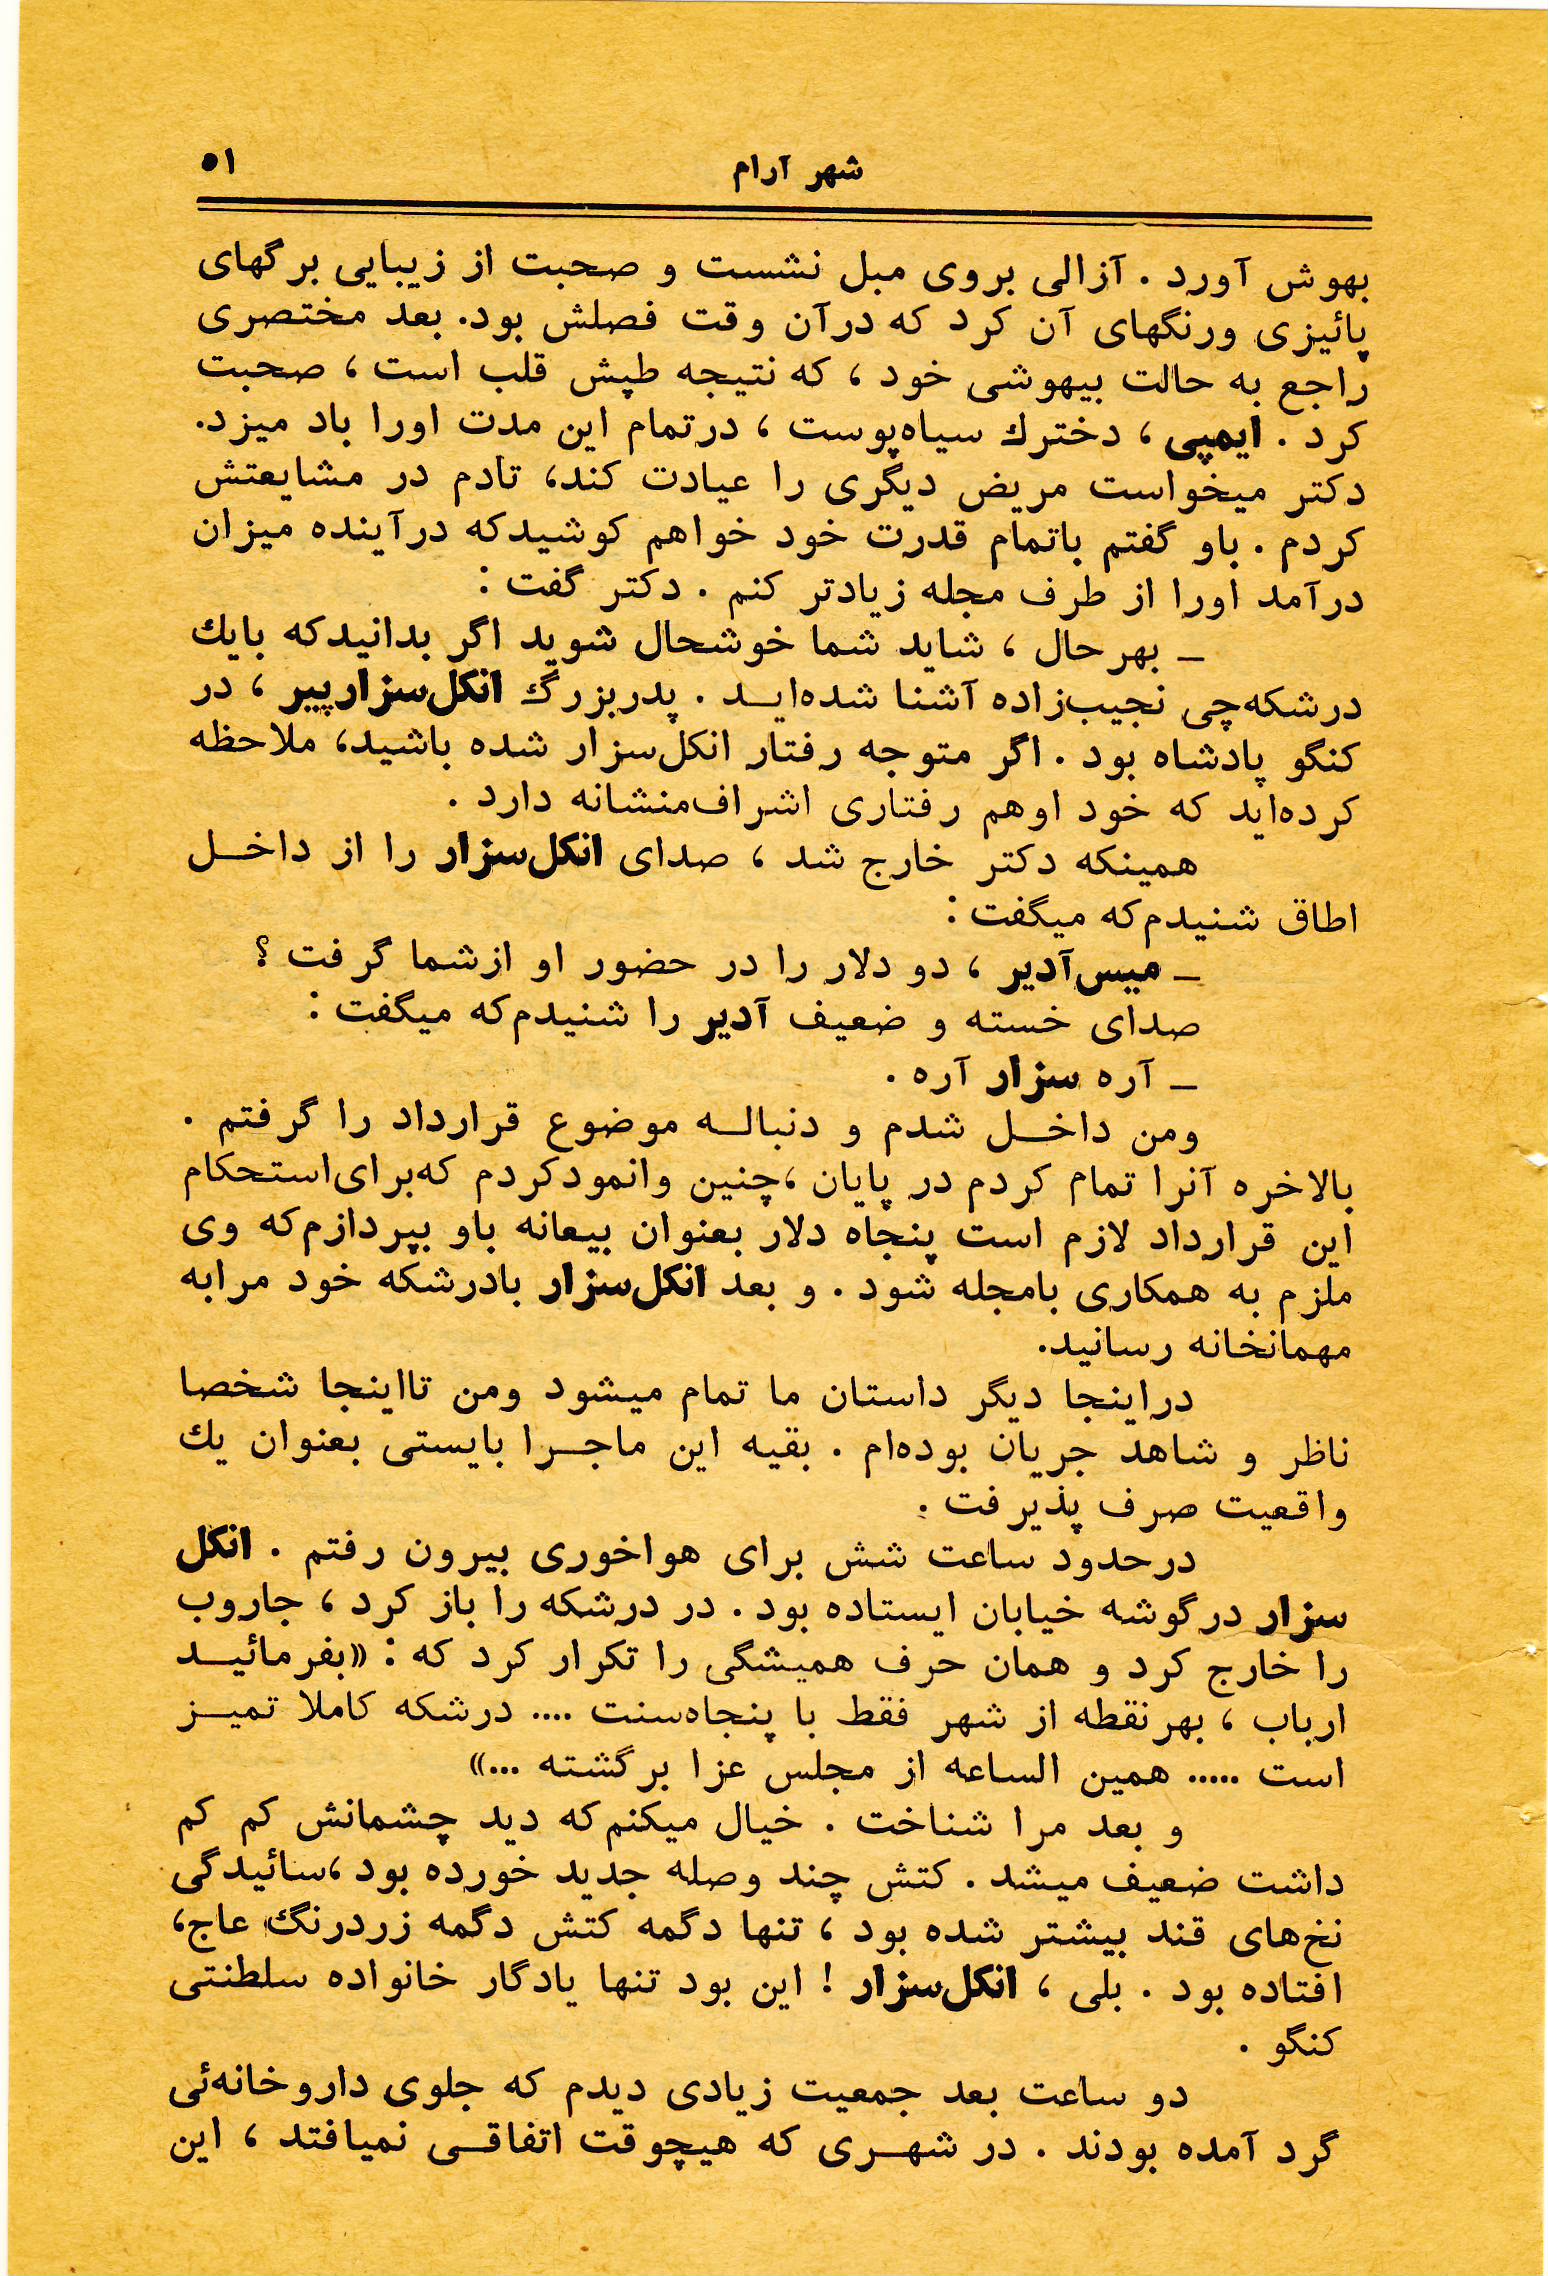 شهر آرام
۵۱
بهوش آورد . آزالی بروی مبل نشست و صحبت از زیبایی برگهای
پائیزی ورنگهای آن کرد که درآن وقت فصلش بود. بعد مختصری
راجع به حالت بیهوشی خود ، که نتیجه طپش قلب است ، صحبت
کرد . ایمپی ، دخترك سیاه‌پوست ، درتمام این مدت اورا باد میزد.
دکتر میخواست مریض دیگری را عیادت کند، تادم در مشایعتش
کردم . باو گفتم باتمام قدرت خود خواهم کوشیدکه درآینده میزان
درآمد اورا از طرف مجله زیادتر کنم . دکتر گفت :
ـ بهرحال ، شاید شما خوشحال شوید اگر بدانیدکه بایك
درشکه‌چی نجیب‌زاده آشنا شده‌ایـد . پدربزرگ انکل‌سزارپیر ، در
کنگو پادشاه بود . اگر متوجه رفتار انکل‌سزار شده باشید، ملاحظه
کرده‌اید که خود اوهم رفتاری اشراف‌منشانه دارد .
همینکه دکتر خارج شد ، صدای انکل‌سزار را از داخـل
اطاق شنیدم‌که میگفت :
ـ میس‌آدیر ، دو دلار را در حضور او ازشما گرفت ؟
صدای خسته و ضعیف آدیر را شنیدم‌که میگفت :
ـ آره سزار آره .
ومن داخـل شدم و دنبالـه موضوع قرارداد را گرفتم .
بالاخره آنرا تمام کردم در پایان ،چنین وانمودکردم که‌برای‌استحکام
این قرارداد لازم است پنجاه دلار بعنوان بیعانه باو بپردازم‌که وی
ملزم به همکاری بامجله شود . و بعد انکل‌سزار بادرشکه خود مرابه
مهمانخانه رسانید.
دراینجا دیگر داستان ما تمام میشود ومن تااینجا شخصا
ناظر و شاهد جریان بوده‌ام . بقیه این ماجـرا بایستی بعنوان یك
واقعیت صرف پذیرفت .
درحدود ساعت شش برای هواخوری بیرون رفتم . انکل
سزار درگوشه خیابان ایستاده بود . در درشکه را باز کرد ، جاروب
را خارج کرد و همان حرف همیشگی را تکرار کرد که : «بفرمائیـد
ارباب ، بهرنقطه از شهر فقط با پنجاه‌سنت .... درشکه کاملا تمیـز
است ..... همین الساعه از مجلس عزا برگشته ...»
و بعد مرا شناخت . خیال میکنم‌که دید چشمانش کم کم
داشت ضعیف میشد . کتش چند وصله جدید خورده بود ،سائیدگی
نخ‌های قند بیشتر شده بود ، تنها دگمه کتش دگمه زردرنگ عاج،
افتاده بود . بلی ، انکل‌سزار ! این بود تنها یادگار خانواده سلطنتی
کنگو .
دو ساعت بعد جمعیت زیادی دیدم که جلوی داروخانه‌ئی
گرد آمده بودند . در شهـری که هیچوقت اتفاقـی نمیافتد ، این